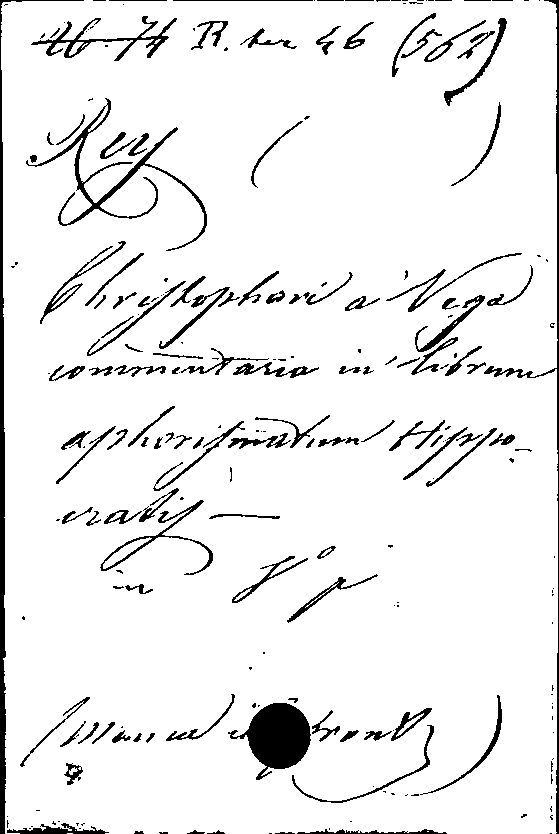 26. 74 R. ter 46 (562)
Rey ( )
Christophori a Vega
commentaria in librum
aphorismatum Hippo-
cratis —
in 8º p
(manca il front )